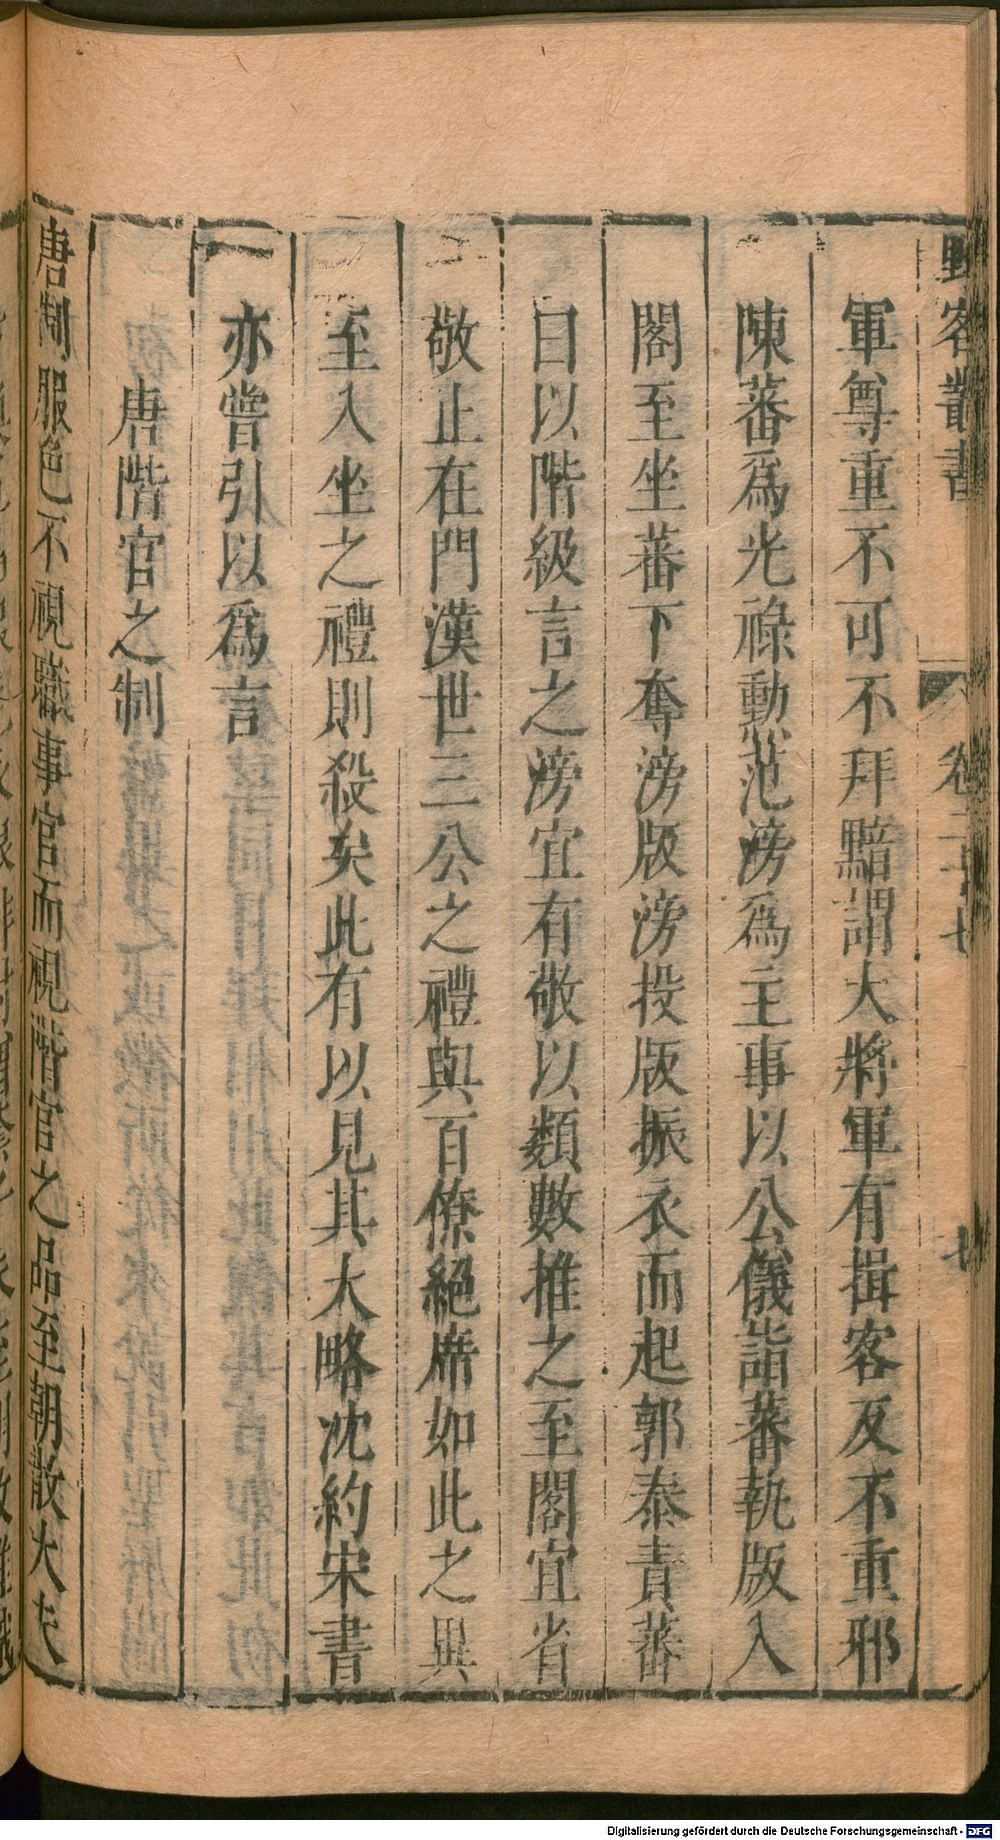 野客叢書 卷二十七 七
軍尊重不可不拜黯謂大將軍有揖客反不重邪
陳蕃爲光祿勳范滂爲主事以公儀詣蕃執版入
閣至坐蕃下奪滂版滂投版振衣而起郭泰責蕃
曰以階級言之滂宜有敬以類數推之至閣宜省
敬止在門漢世三公之禮與百僚絕席如此之異
至入坐之禮則殺矣此有以見其大略沈約宋書
亦嘗引以爲言
唐階官之制
唐制服色不視職事官而視階官之品至朝散大夫
Digitalisierung gefördert durch die Deutsche Forschungsgemeinschaft - DFG